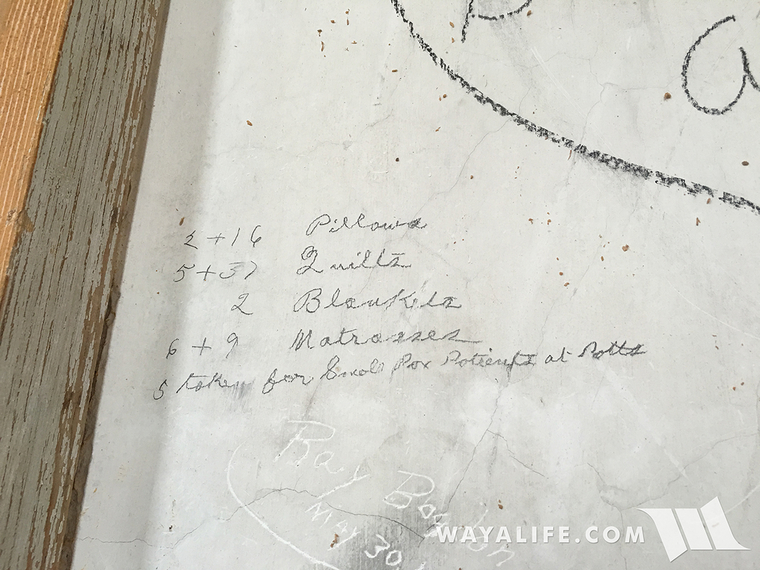 a
2 + 16 Pillows
5 + 37 Quilts
2 Blankets
6 + 9 Matrasses
5 taken for Small Pox Patients at Potts
Ray
May 30
WAYALIFE.COM